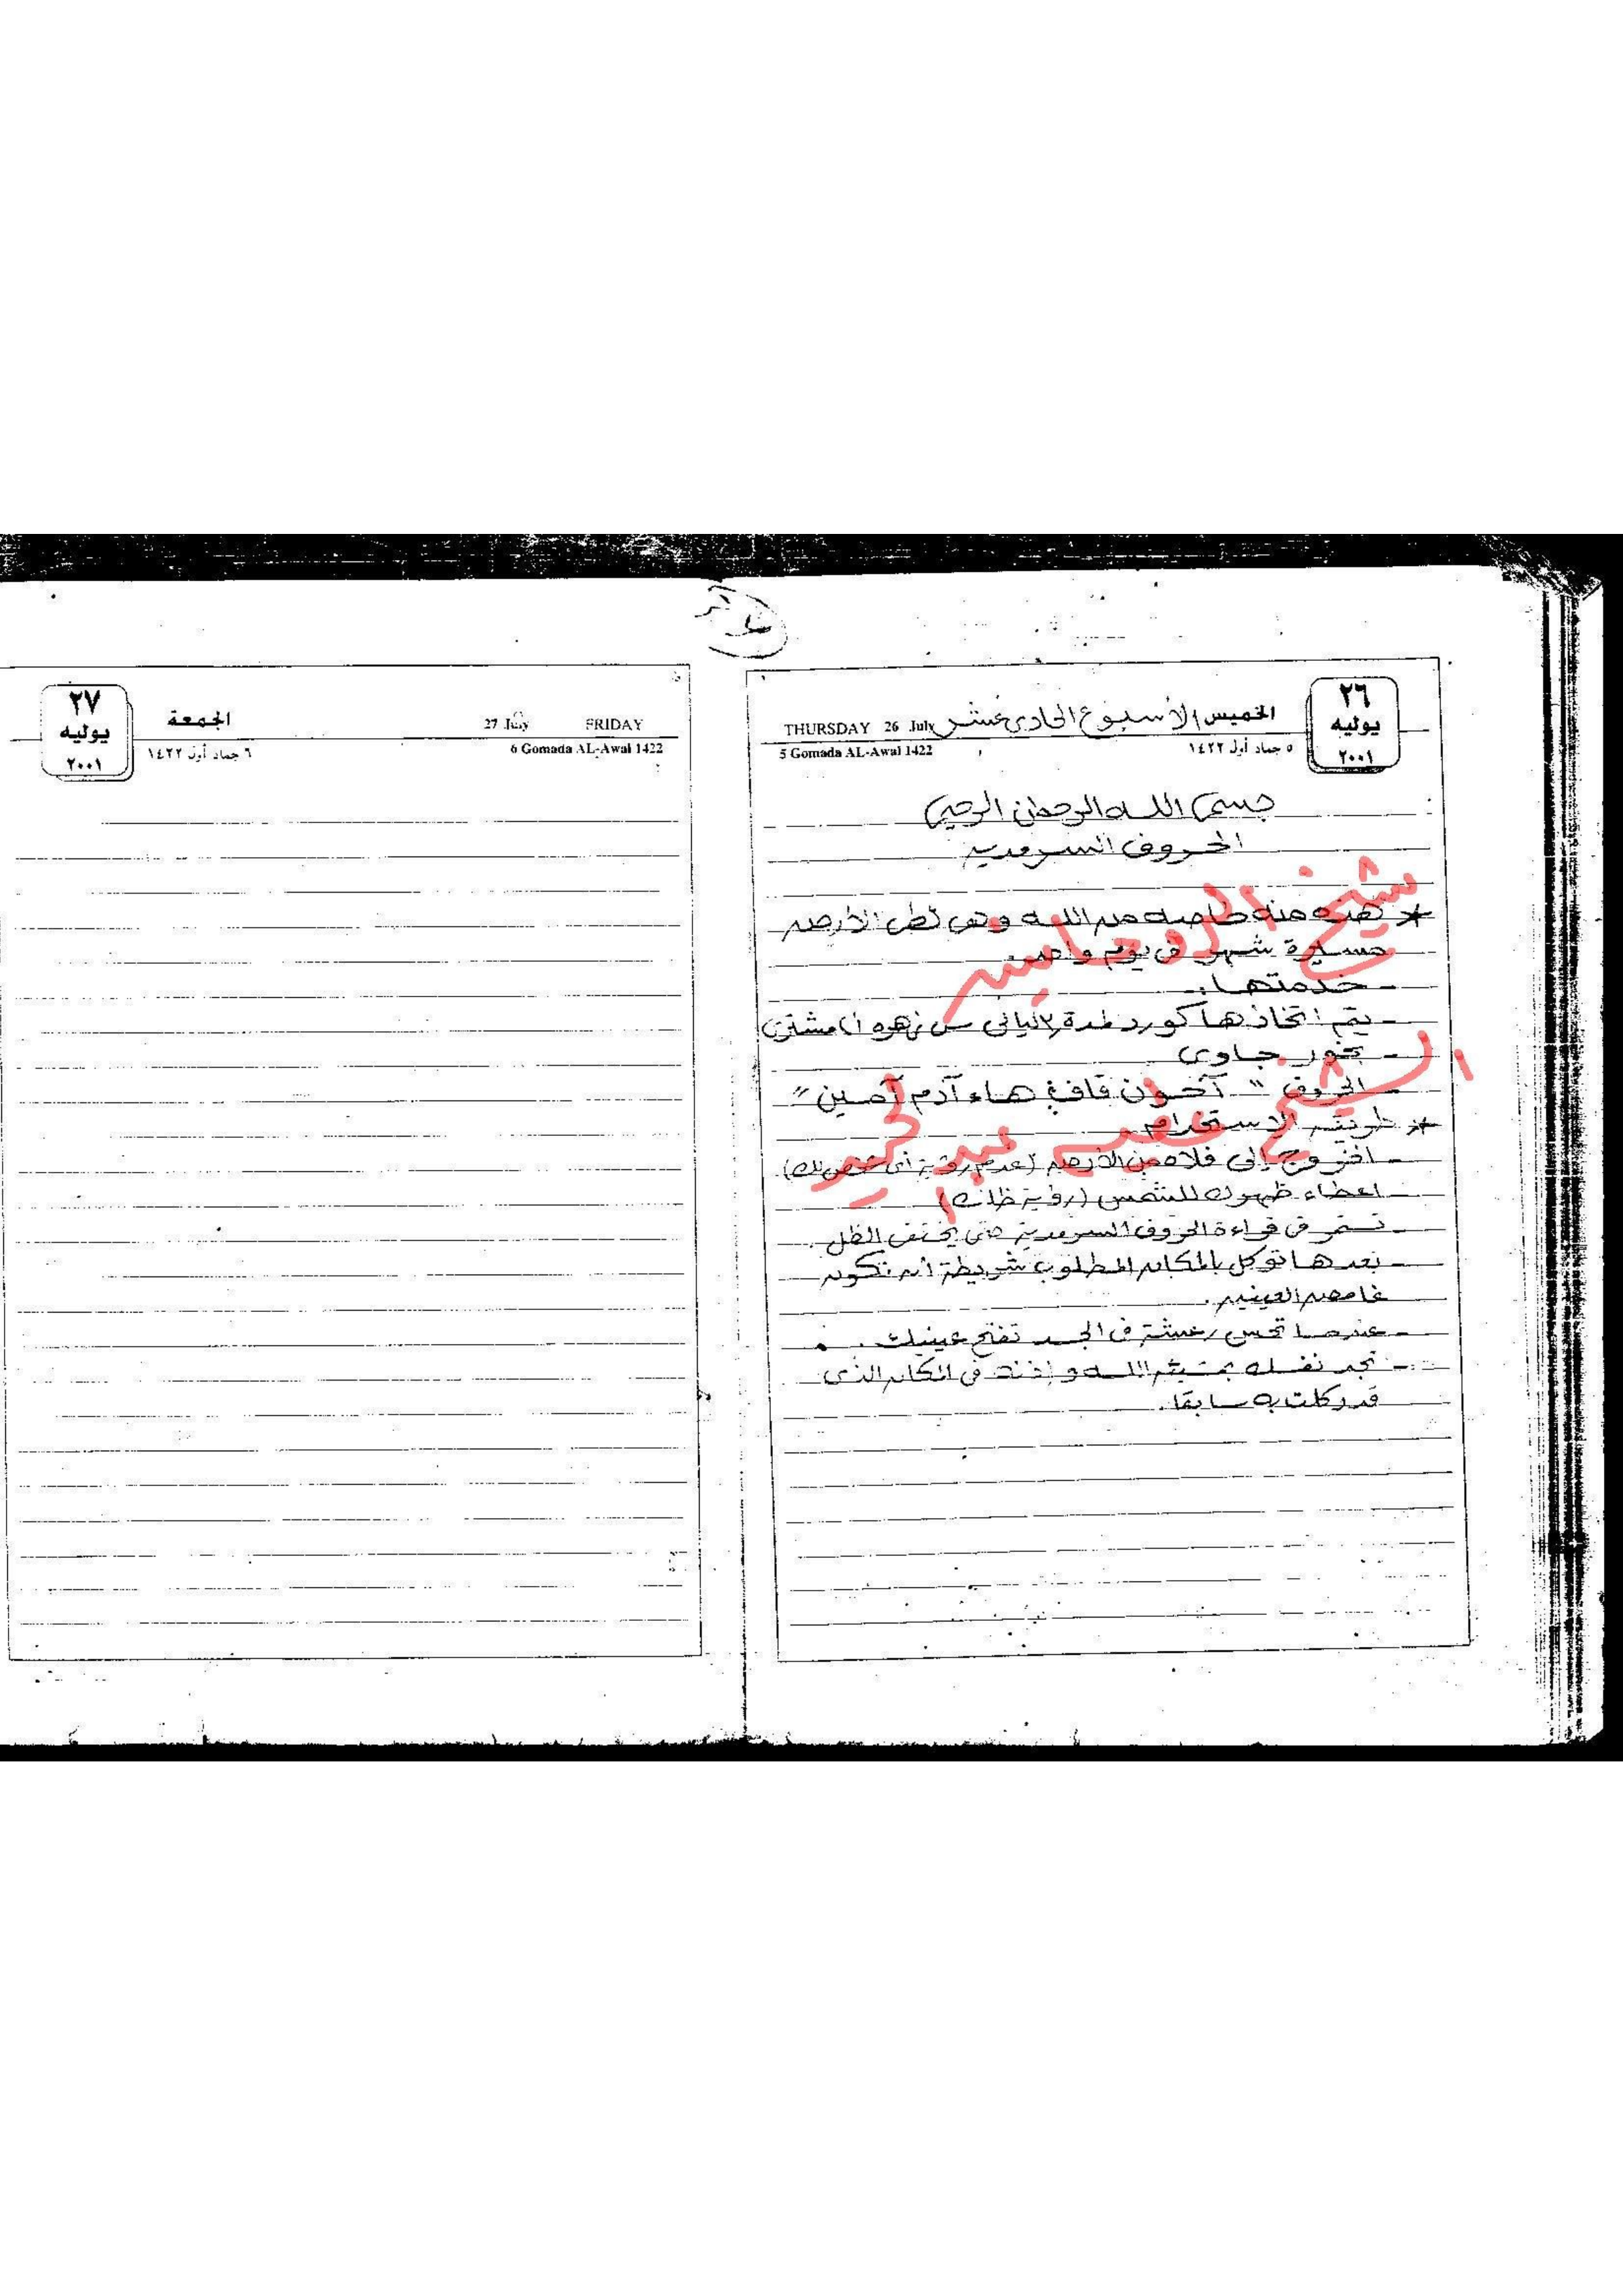 ٢٦
يوليه
٢٠٠١
الخميس الأسبوع الحادى عشر
THURSDAY 26 July
٥ جماد أول ١٤٢٢
5 Gomada AL-Awal 1422
بسم الله الرحمن الرحيم
الحروف السرمدية
* هذه منة خاصة من الله وهى لطى الأرض
مسيرة شهر فى يوم واحد.
- خدمتها:
- يتم اتخاذها كورد لمدة ٣ ليالى زهره مشترى
- بخور جاوى
- الحروف " آخون قاف هاء آدم آمين "
* طريقة الاستخدام
- الخروج إلى فلاه من الأرض (عدم رؤية أى شخص لك)
- اعطاء ظهرك للشمس (رؤية ظلك)
- تستمر فى قراءة الحروف السرمدية حتى يختفى الظل.
- بعدها توكل بالمكان المطلوب شريطة أن تكون
غامض العينين.
- عندما تحس رعشة فى الجسد تفتح عينيك.
- تجد نفسك بمشيئة الله وإذنه فى المكان الذى
قد وكلت به سابقا.
شيخ الروحانيين
الشيخ
٢٧
يوليه
٢٠٠١
الجمعة
27 July FRIDAY
٦ جماد أول ١٤٢٢
6 Gomada AL-Awal 1422